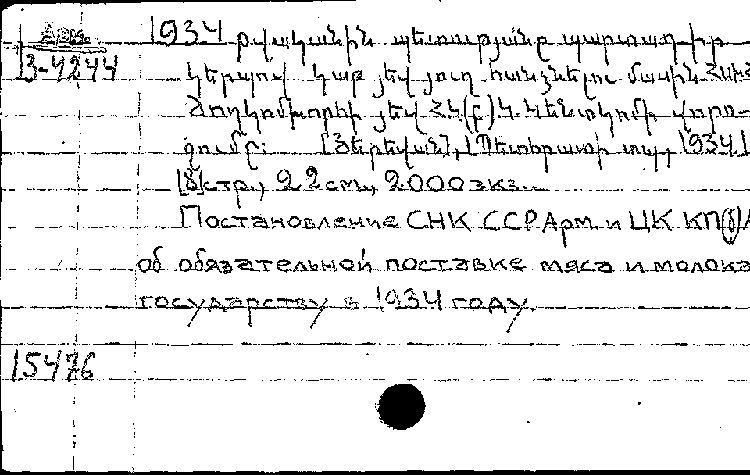 1934 թվականին պետությանը պարտադիր
13-4244
կերպով կաթ յեվ յուղ հանձնելու մասին ՀՍԽՀ
Ժողկոմխորհի յեվ ՀԿ(բ)Կ Կենտկոմի վորո-
շումը: [Յերեվան], [Պետհրատի տպ., 1934].
[8] стр., 22 см., 2000 экз.
Постановление СНК ССР Арм. и ЦК КП(б)А
об обязательной поставке мяса и молока
государству в 1934 году.
15476